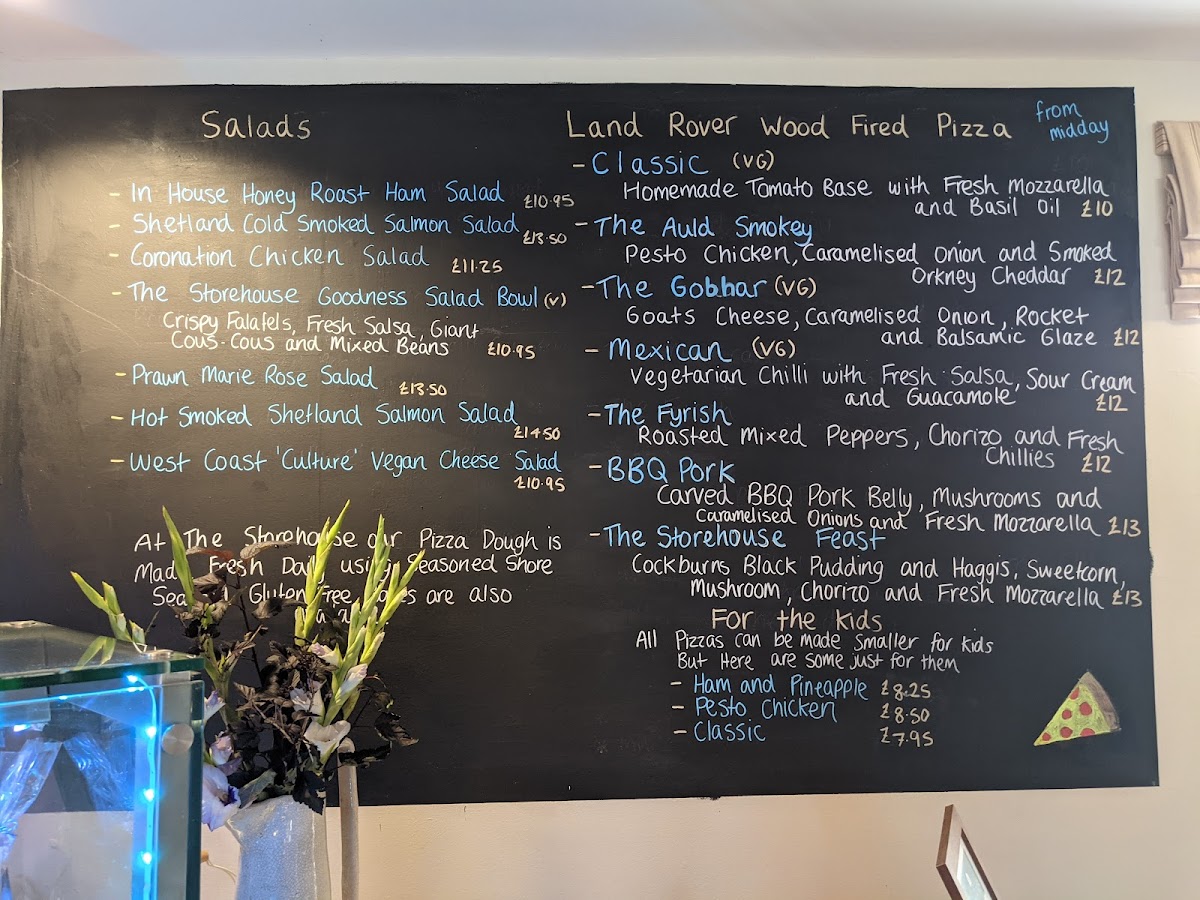 Salads
- In House Honey Roast Ham Salad £10.95
- Shetland Cold Smoked Salmon Salad £13.50
- Coronation Chicken Salad £11.25
- The Storehouse Goodness Salad Bowl (v)
Crispy Falafels, Fresh Salsa, Giant
Cous-Cous and Mixed Beans £10.95
- Prawn Marie Rose Salad £13.50
- Hot Smoked Shetland Salmon Salad
£14.50
- West Coast 'Culture' Vegan Cheese Salad
£10.95
At The Storehouse our Pizza Dough is
Fresh using Seasoned Shore
Gluten Free are also
Land Rover Wood Fired Pizza from
midday
- Classic (VG)
Homemade Tomato Base with Fresh Mozzarella
and Basil Oil £10
- The Auld Smokey
Pesto Chicken, Caramelised Onion and Smoked
Orkney Cheddar £12
- The Gobhar (VG)
Goats Cheese, Caramelised Onion, Rocket
and Balsamic Glaze £12
- Mexican (VG)
Vegetarian Chilli with Fresh Salsa, Sour Cream
and Guacamole £12
- The Fyrish
Roasted Mixed Peppers, Chorizo and Fresh
Chillies £12
- BBQ Pork
Carved BBQ Pork Belly, Mushrooms and
Caramelised Onions and Fresh Mozzarella £13
- The Storehouse Feast
Cockburns Black Pudding and Haggis, Sweetcorn,
Mushroom, Chorizo and Fresh Mozzarella £13
For the kids
All Pizzas can be made smaller for kids
But Here are some just for them
- Ham and Pineapple £8.25
- Pesto Chicken £8.50
- Classic £7.95